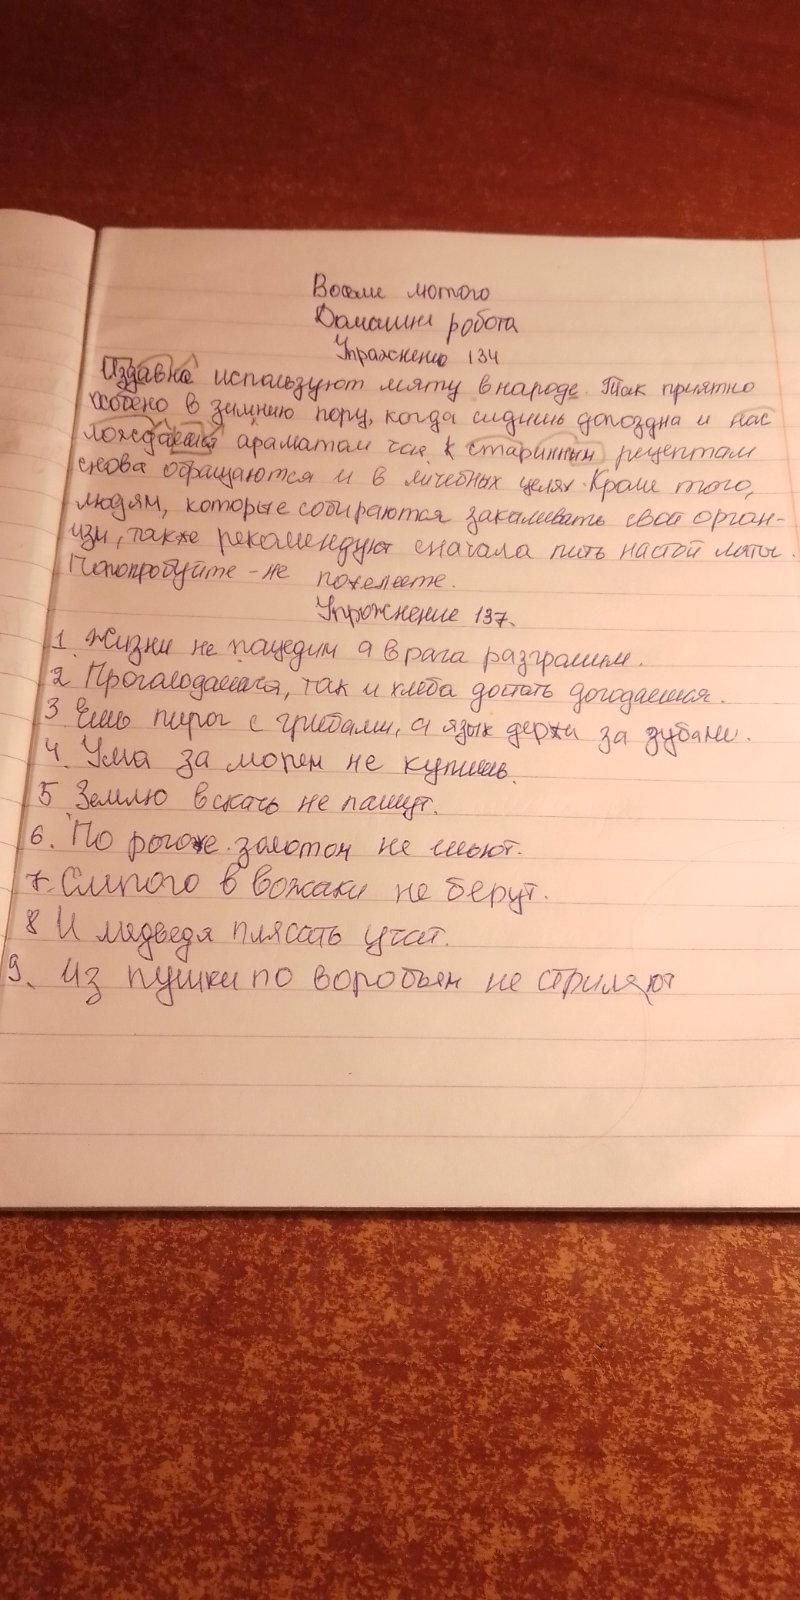 Восьме лютого
Домашня робота
Упражнение 134
Издавна используют мяту в народе. Так приятно
особено в зимнию пору, когда сидишь допоздна и нас
лождаешся араматам чая. К старинным рецептам
снова обращаются и в личебных целях. Кроме того,
людям, которые собираются закаливать свой орган-
изм, также рекомендуют сначала пить настой мяты.
Попробуйте - не пожелеете.
Упрожнение 137.
1. Жизни не пащедим а врага разгромим.
2 Проголодаешся, так и хлеба достать догодаешся.
3 Ешь пирог с грибами, а язык держи за зубами.
4. Ума за морем не купишь.
5 Землю вскачь не пашут.
6. По рогоже золотом не шьют.
7. Слипого в вожаки не берут.
8 И медведя плясать учат.
9. Из пушки по воробьям не стриляют